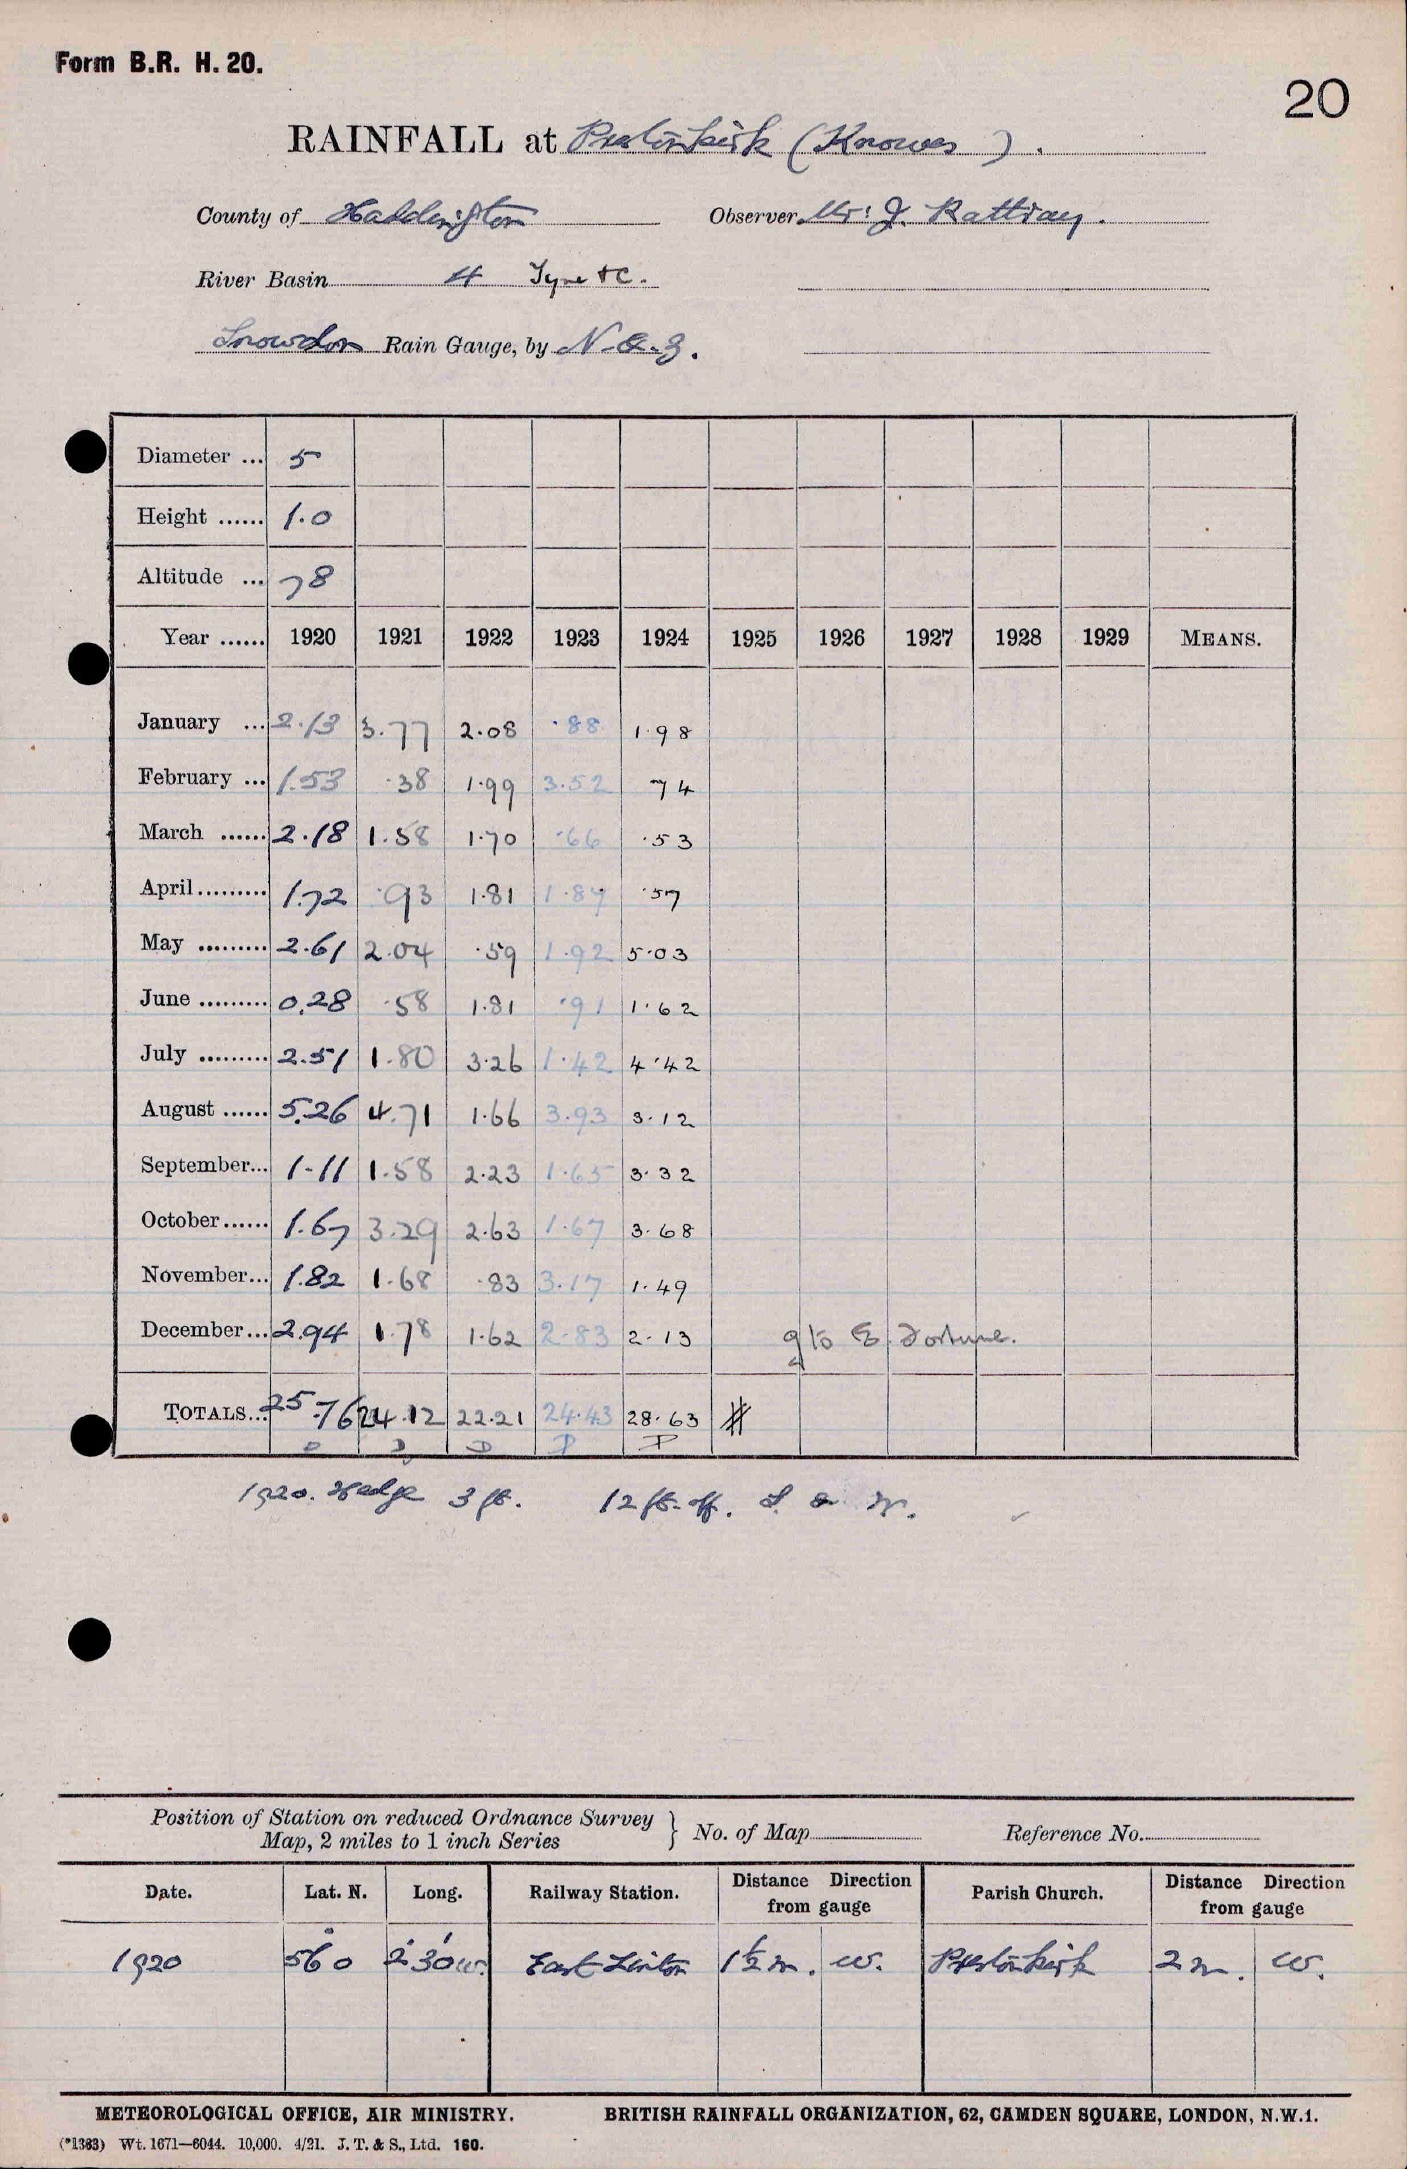 Form B.R. H. 20.
20
RAINFALL at Prestonkirk (Knowes).
County of Haddington Observer Mr. J. Rattray.
River Basin 4 Tyne &c.
Snowdon Rain Gauge, by N. & Z.
Diameter ... 5
Height ...... 1.0
Altitude ... 78
Year ...... 1920 1921 1922 1923 1924 1925 1926 1927 1928 1929 MEANS.
January ... 2.13 3.77 2.08 .88 1.98
February ... 1.53 .38 1.99 3.52 74
March ...... 2.18 1.58 1.70 .66 .53
April ......... 1.72 .93 1.81 1.87 .57
May ......... 2.61 2.04 .59 1.92 5.03
June ......... 0.28 .58 1.81 .91 1.62
July ......... 2.51 1.80 3.26 1.42 4.42
August ...... 5.26 4.71 1.66 3.93 3.12
September... 1.11 1.58 2.23 1.65 3.32
October...... 1.67 3.29 2.63 1.67 3.68
November... 1.82 1.68 .83 3.17 1.49
December... 2.94 1.78 1.62 2.83 2.13 g to E. Fortune.
TOTALS... 25.76 24.12 22.21 24.43 28.63 #
D D D P P
1920. Hedge 3 ft. 12 ft. off. S. & W.
Position of Station on reduced Ordnance Survey
Map, 2 miles to 1 inch Series } No. of Map Reference No.
Date. Lat. N. Long. Railway Station. Distance Direction from gauge Parish Church. Distance Direction from gauge
1920 56° 0 2° 30' W. East Linton 1½ m. W. Prestonkirk 2 m. W.
METEOROLOGICAL OFFICE, AIR MINISTRY. BRITISH RAINFALL ORGANIZATION, 62, CAMDEN SQUARE, LONDON, N.W.1.
(*1383) Wt. 1671—6044. 10,000. 4/21. J. T. & S., Ltd. 160.